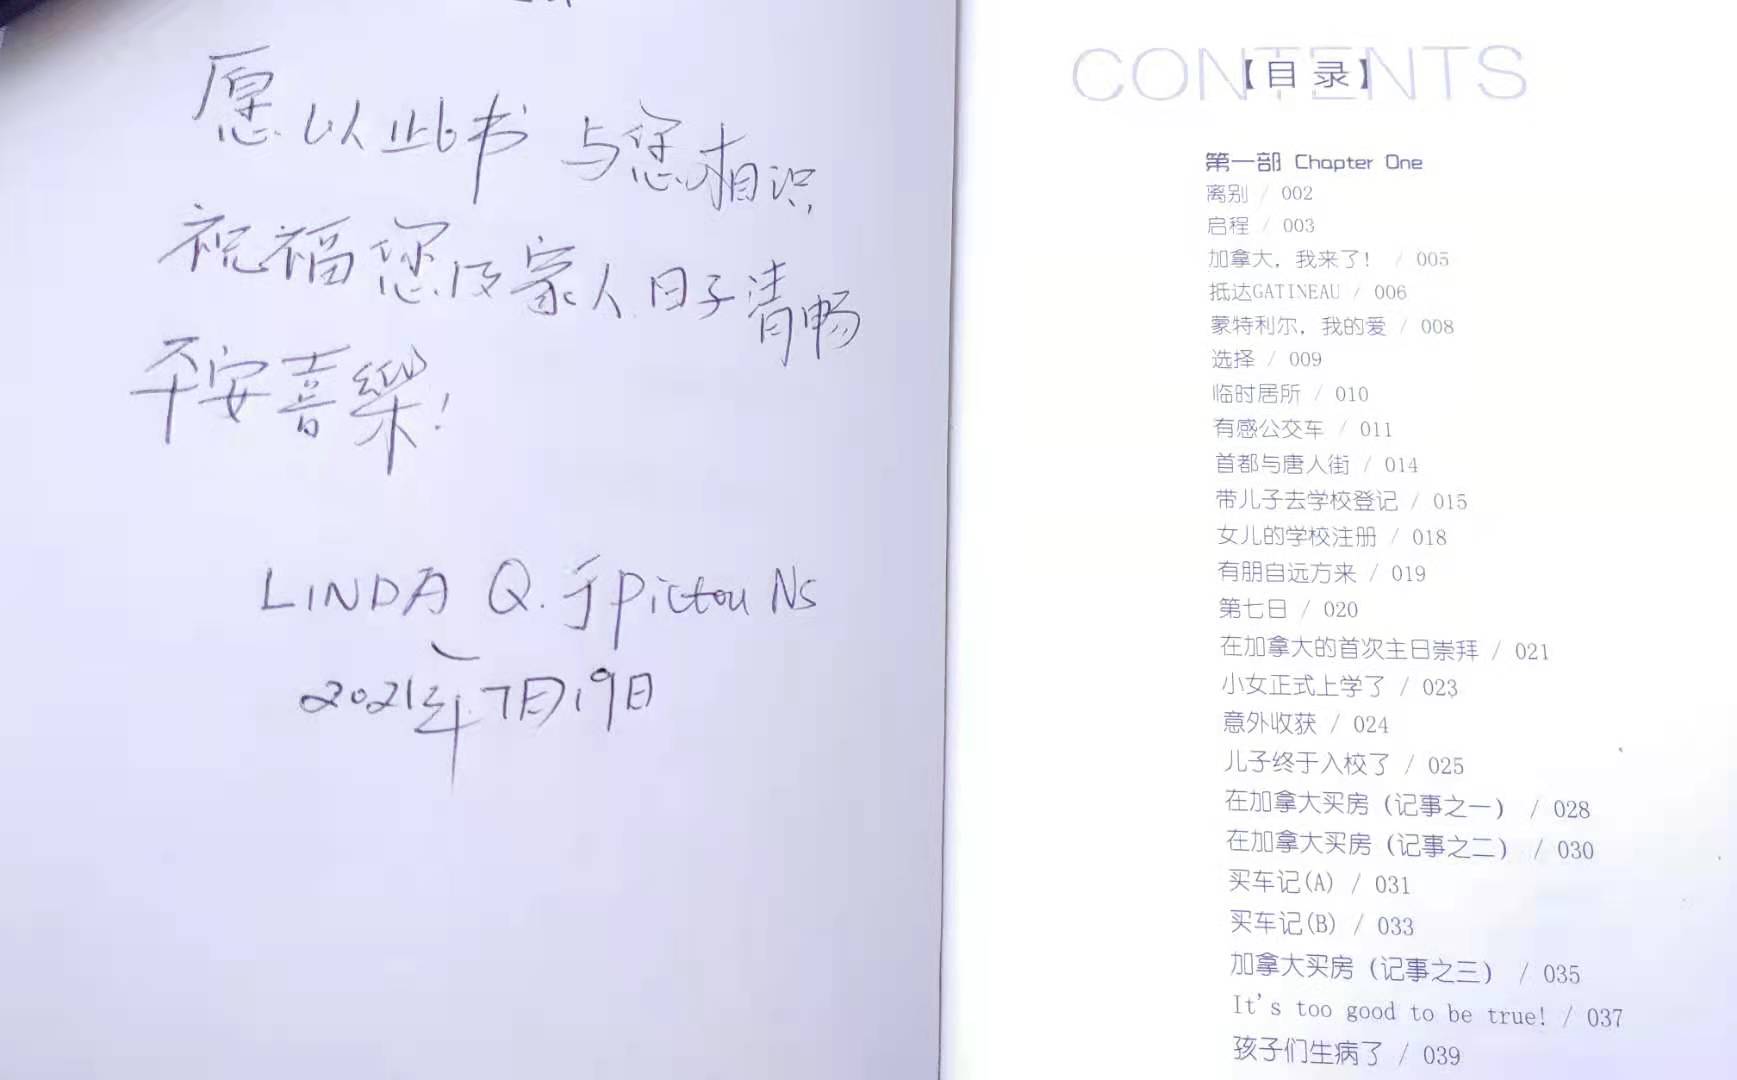 愿以此书与您相识
祝福您及家人日子清畅
平安喜樂!
LINDA Q. 于Pictou NS
2021年7月19日
CONTENTS
【目录】
第一部 Chapter One
离别 / 002
启程 / 003
加拿大，我来了! / 005
抵达GATINEAU / 006
蒙特利尔，我的爱 / 008
选择 / 009
临时居所 / 010
有感公交车 / 011
首都与唐人街 / 014
带儿子去学校登记 / 015
女儿的学校注册 / 018
有朋自远方来 / 019
第七日 / 020
在加拿大的首次主日崇拜 / 021
小女正式上学了 / 023
意外收获 / 024
儿子终于入校了 / 025
在加拿大买房（记事之一） / 028
在加拿大买房（记事之二） / 030
买车记(A) / 031
买车记(B) / 033
加拿大买房（记事之三） / 035
It's too good to be true! / 037
孩子们生病了 / 039